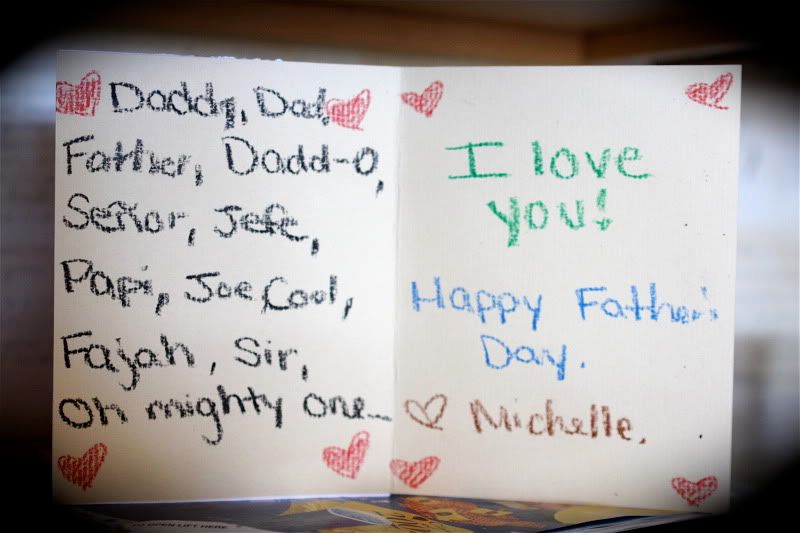 Daddy, Dad,
Father, Dadd-O,
Señor, Jefe,
Papi, Joe Cool,
Fajah, Sir,
Oh mighty one...
I love
you!
Happy Father's
Day.
Michelle.
TO OPEN LIFT HERE